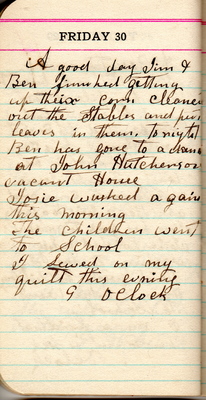 FRIDAY 30
A good day Jim &
Ben finished getting
up their corn cleaned
out the Stables and put
leaves in them. To night
Ben has gone to a
at John Hutcherson
vacant House
Josie washed a gain
this morning
The children went
to School
I Sewed on my
quilt this evening
9 OClock